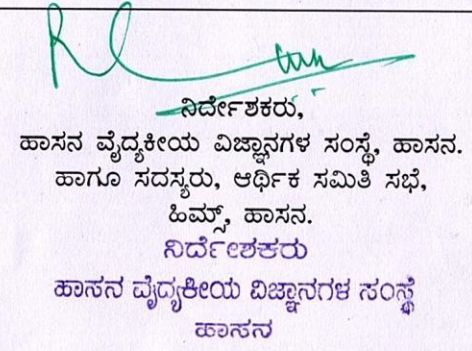 ನಿರ್ದೇಶಕರು,
ಹಾಸನ ವೈದ್ಯಕೀಯ ವಿಜ್ಞಾನಗಳ ಸಂಸ್ಥೆ, ಹಾಸನ.
ಹಾಗೂ ಸದಸ್ಯರು, ಆರ್ಥಿಕ ಸಮಿತಿ ಸಭೆ,
ಹಿಮ್ಸ್, ಹಾಸನ.
ನಿರ್ದೇಶಕರು
ಹಾಸನ ವೈದ್ಯಕೀಯ ವಿಜ್ಞಾನಗಳ ಸಂಸ್ಥೆ
ಹಾಸನ